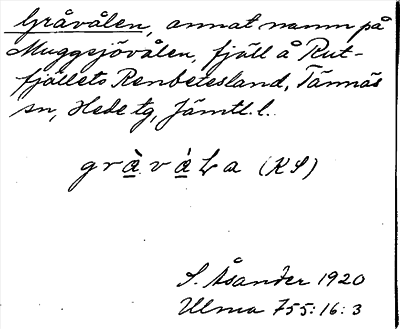 Gråvålen, annat namn på
Muggsjövålen, fjäll å Rut-
fjällets Renbetesland, Tännäs
sn, Hede tg, Jämtl. l.
grà̠và̠Ƚa (KS)
S. Åsander 1920
Ulma 755:16:3